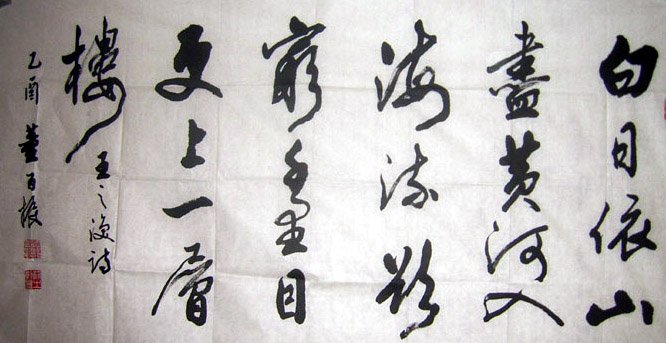 白日依山
盡黄河入
海流欲
窮千里目
更上一層
樓 王之渙詩
乙酉 董百振